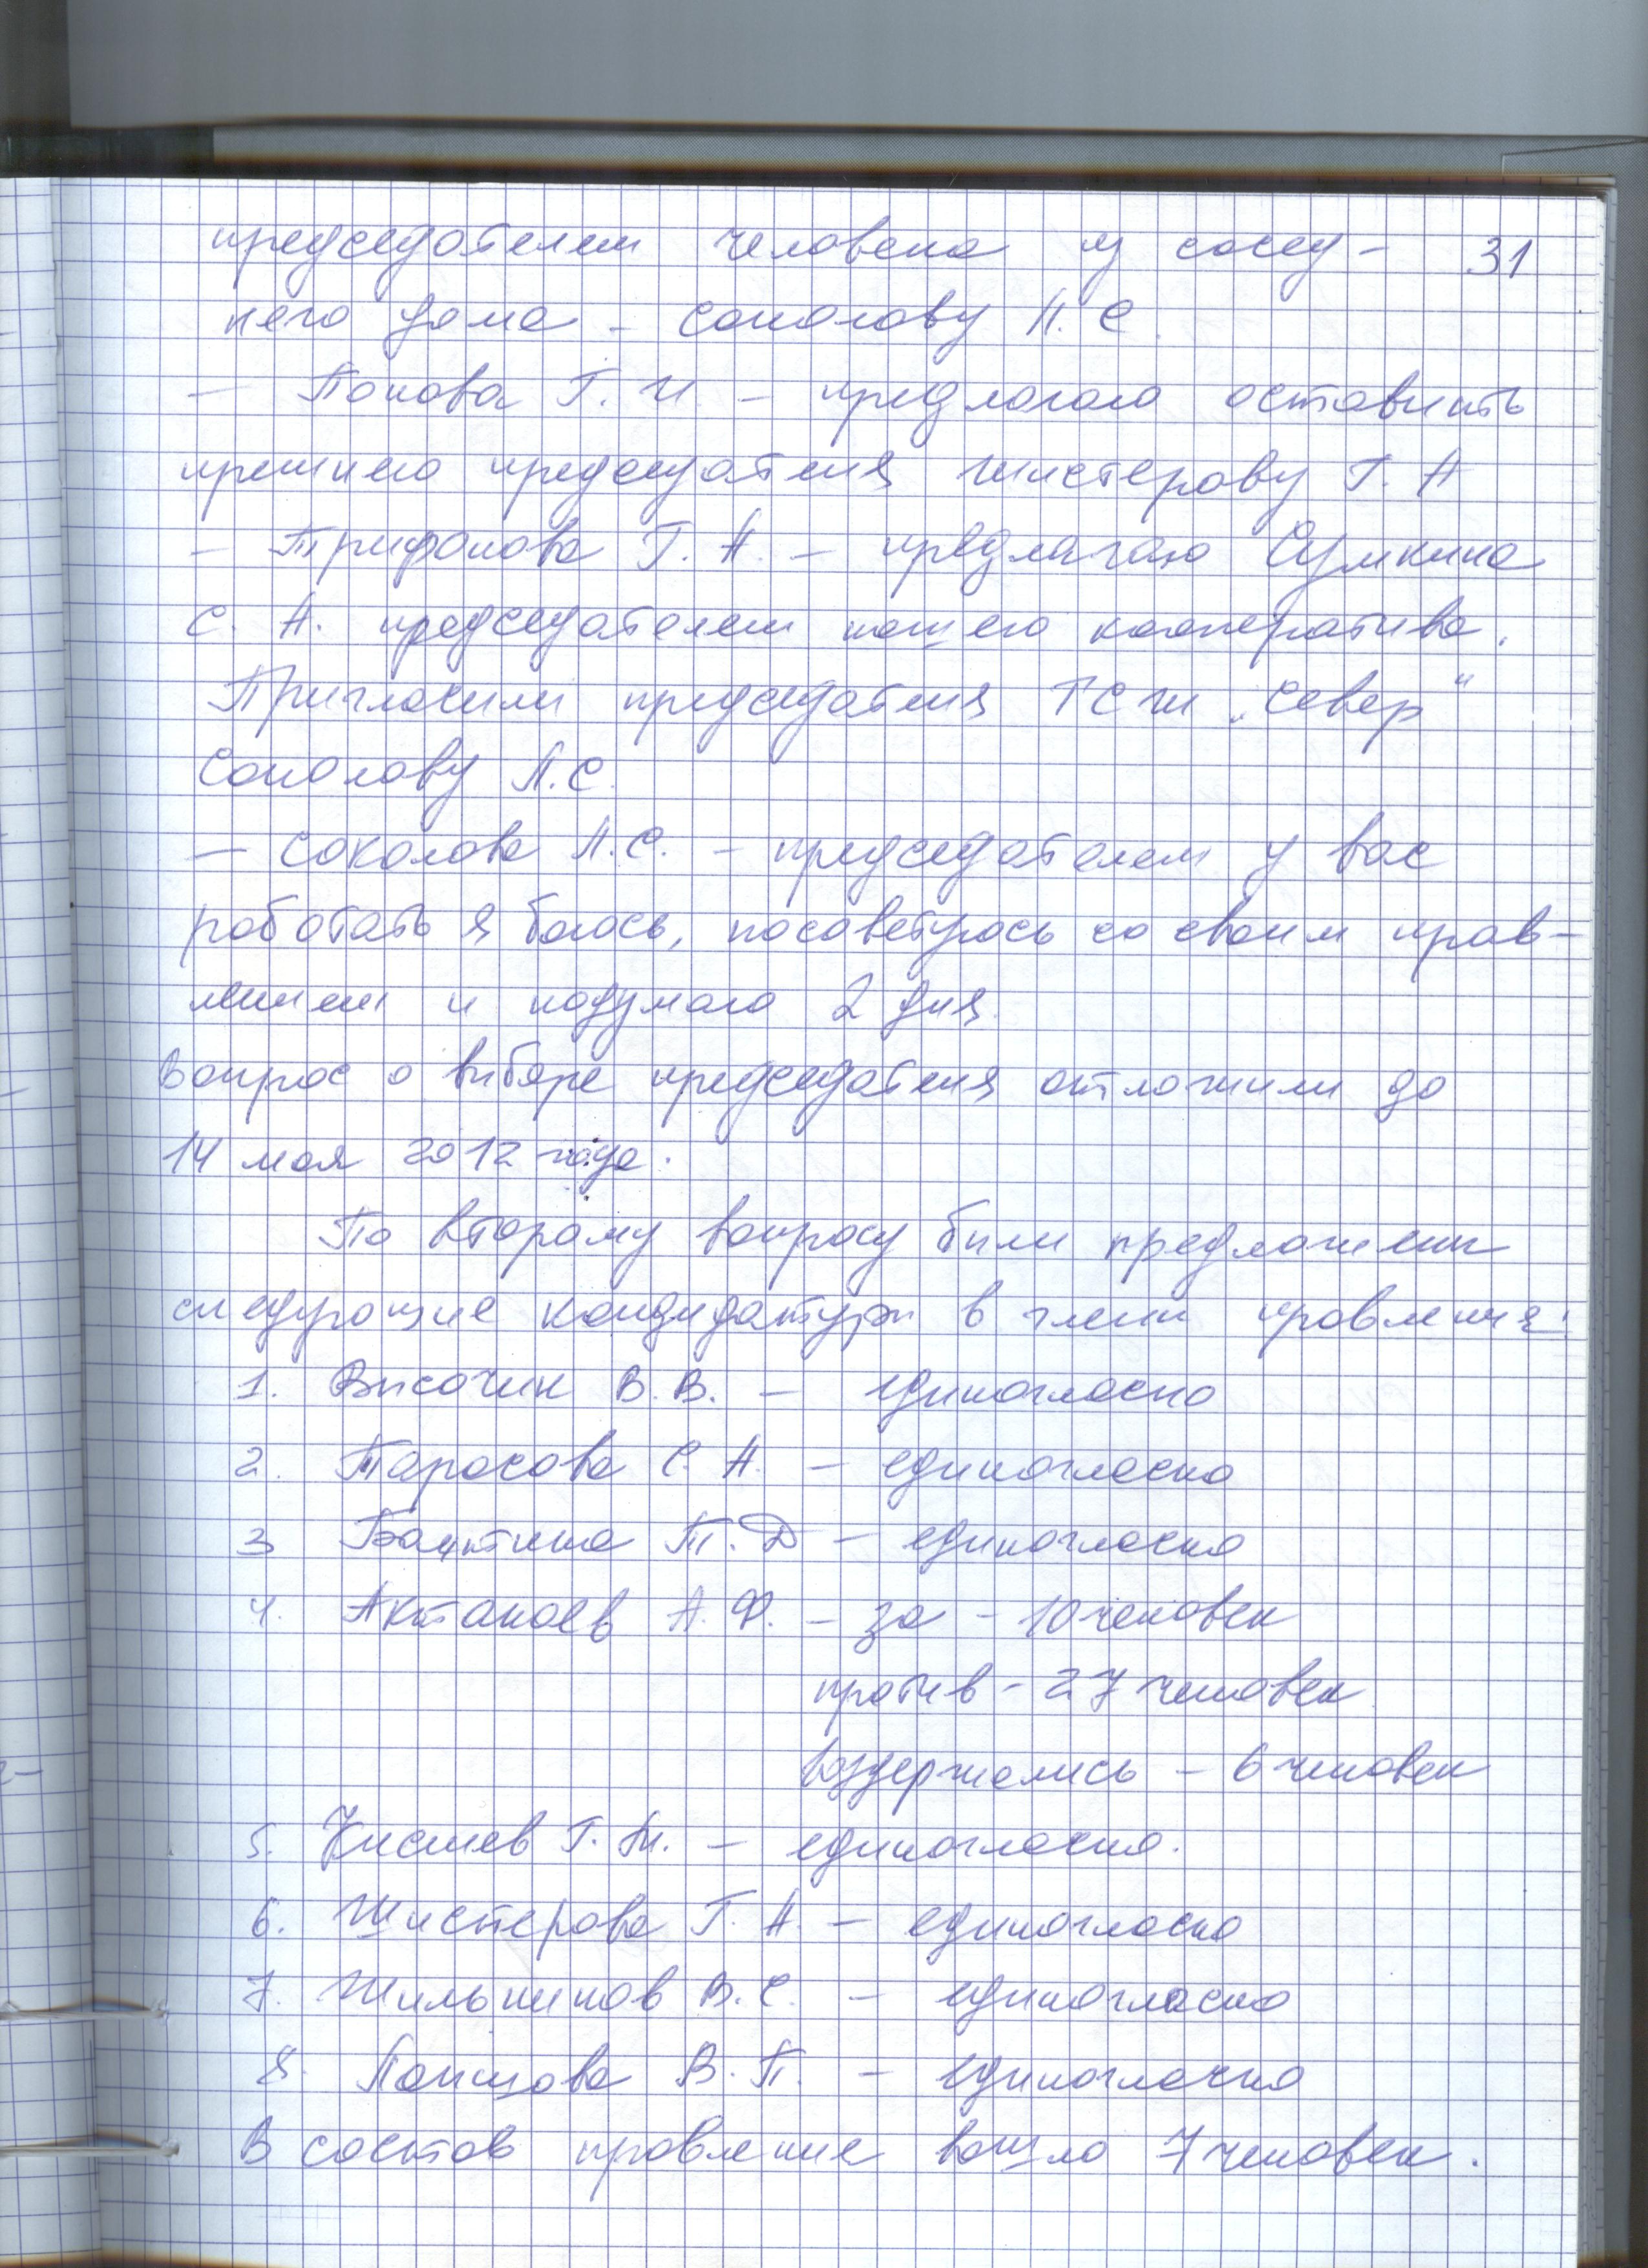 председателем человека из сосед- 31
него дома - Соколову Л. С.
- Попова Г. И. - предлагаю оставить
прежнего председателя Шистерову Г. А
- Трифонова Г. А. - предлагаю Сумкина
С. А. председателем нашего кооператива.
Пригласили председателя ТСЖ „Север"
Соколову Л.С.
- Соколова Л.С. - председателем у вас
работать я боюсь, посоветуюсь со своим прав-
лением и подумаю 2 дня.
Вопрос о выборе председателя отложили до
14 мая 2012 года.
По второму вопросу были предложены
следующие кандидатуры в члены правления:
1. Высочин В. В. - единогласно
2. Тарасова С. А. - единогласно
3 Т. Д - единогласно
4. Актанаев А. Ф. - за - 10 человек
против - 27 человек
воздержались - 6 человек
5. Г. М. - единогласно.
6. Шистерова Г. А. - единогласно
7. В. С. - единогласно
8. В. П. - единогласно
В состав правление вошло 7 человек.